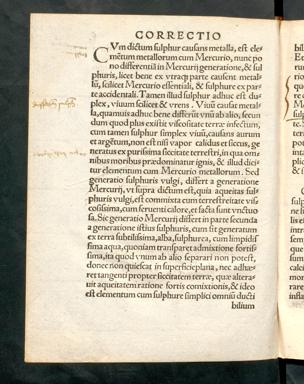 CORRECTIO
CVm dictum sulphur causans metalla, est ele
mẽtum metallorum cum Mercurio, nunc po
no differentiã in Mercurij generatione, & sul
phuris, licet bene ex vtraq; parte causent metal-
lũ, scilicet Mercurio essentiali, & sulphure ex par
te accidentali. Tamen illud sulphur adhuc est du
plex, viuum scilicet & vrens. Viuũ causat metal-
la, quamuis adhuc bene differũt vnũ ab alio, secun
dum quod plus existit viscositate terræ infectum,
cum tamen sulphur simplex viuũ, causans aurum
et argẽtum, non est nisi vapor calidus et siccus, ge
neratus ex purissima siccitate terrestri, in qua om
nibus moribus prædominatur ignis, & illud dici
tur elementum cum Mercurio metallorum. Sed
generatio sulphuris vulgi, differt a generatione
Mercurij, vt supra dictum est, quia aqueitas sul-
phuris vulgi, est commixta cum terrestreitate vis
cosissima, cum feruenti calore, et facta sunt vnctuo
sa. Sic generatio Mercurij differt in parte secunda
a generatione istius sulphuris, cum sit generatum
ex terra subtilissima, alba, sulphurea, cum limpidis
sima aqua, quoniam transparet admixtione fortis-
sima, ita quod vnum ab alio separari non potest,
donec non quiescat in superficie plana, nec adhæ-
ret tangenti propter siccitatem terræ, quæ altera-
uit aqueitatem ratione fortis comixtionis, & ideo
est elementum cum sulphure simplici omniũ ducti
bilium